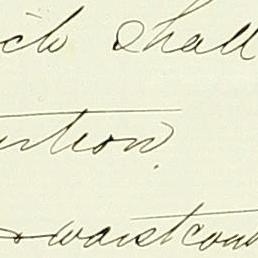 ich shall
ution.
waistcoat